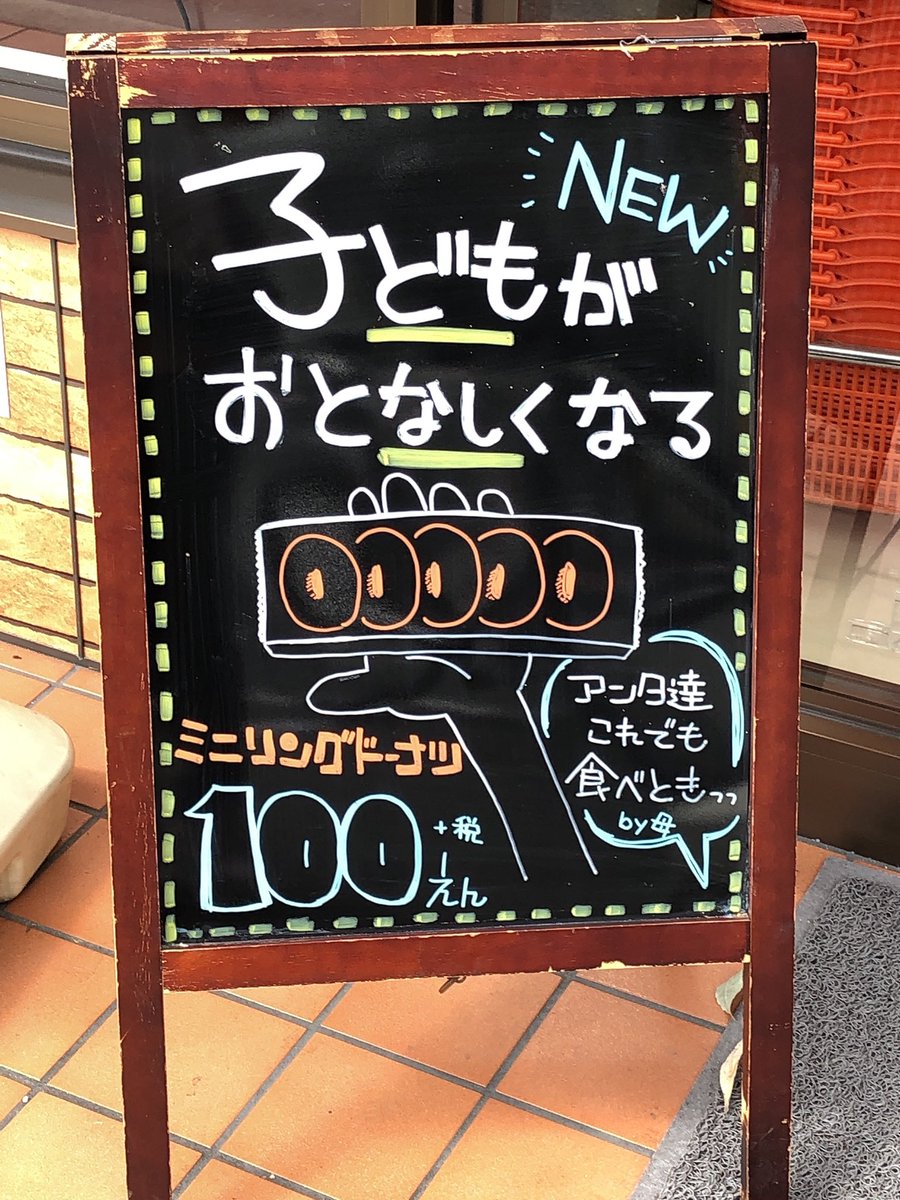 NEW
子どもが
おとなしくなる
アンタ達
これでも
食べときっっ
by母
ミニリングドーナツ
100
+税
えん